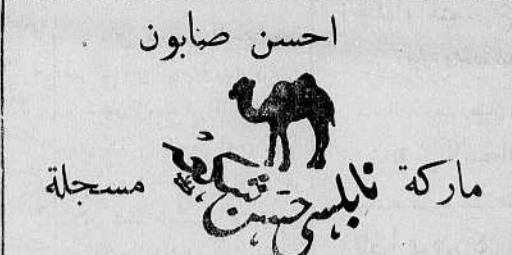 احسن صابون
ماركة نابلسي حسن شكعة مسجلة